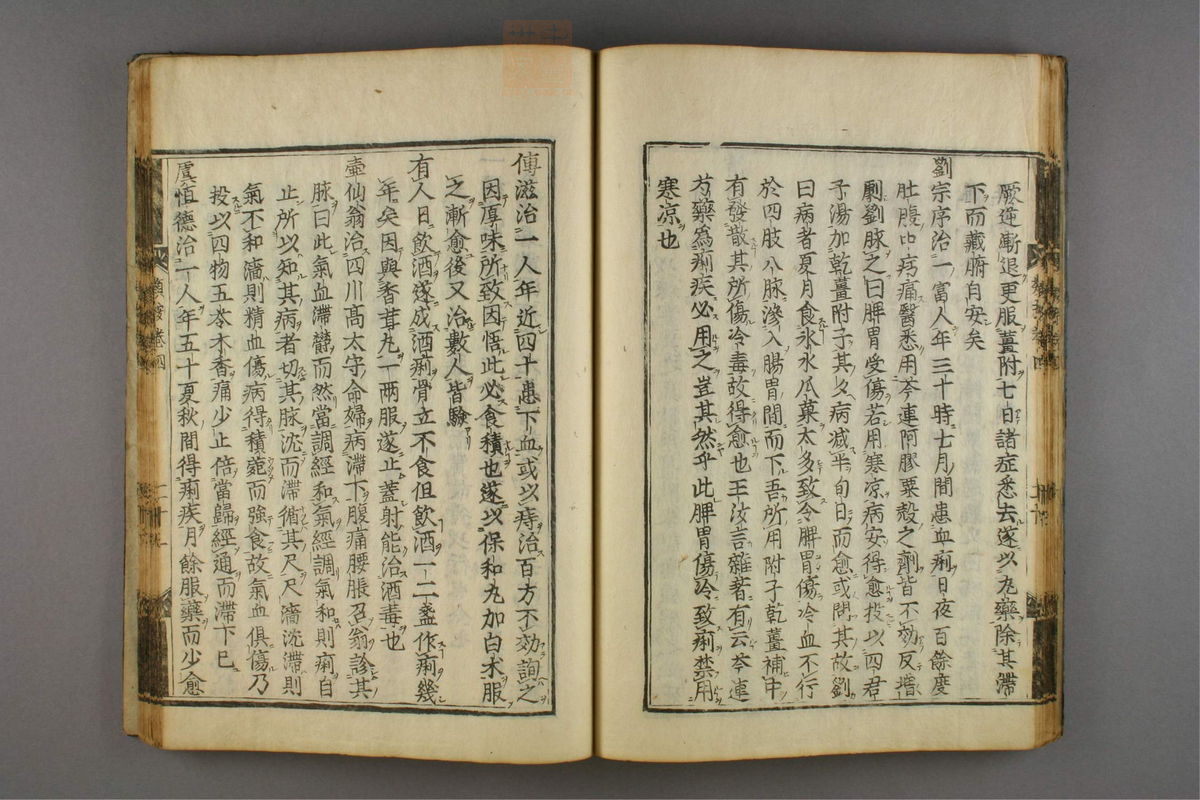 厥逆漸退更服薑附七日諸症悉去遂以丸藥除其滯
下而藏腑自安矣
劉宗序治一富人年三十時七月間患血痢日夜百餘度
肚腹㽲痛醫悉用芩連阿膠粟殼之劑皆不効反增
劇劉脉之曰脾胃受傷若用寒凉病安得愈投以四君
子湯加乾薑附子其夕病减半旬日而愈或問其故劉
曰病者夏月食氷水瓜菓太多致令脾胃傷冷血不行
於四肢八脉滲入腸胃間而下吾所用附子乾薑補中
有發散其所傷冷毒故得愈也王汝言雜著有云芩連
芍藥爲痢疾必用之豈其然乎此脾胃傷冷致痢禁用
寒凉也
傳滋治一人年近四十患下血或以痔治百方不効詢之
因厚味所致因悟此必食積也遂以保和丸加白术服
之漸愈後又治數人皆驗
有人日飲酒遂成酒痢骨立不食但飲酒一二盞作痢幾
年矣因與香茸丸一兩服遂止蓋射能治酒毒也
壺仙翁治四川髙太守命婦病滯下腹痛腰脹召翁診其
脉曰此氣血滯欝而然當調經和氣經調氣和則痢自
止所以知其病者切其脉沈而滯循其尺尺濇沈滯則
氣不和濇則精血傷病得積薨而強食故氣血俱傷乃
投以四物五苓木香痛少止倍當歸經通而滯下已
虞恒德治一人年五十夏秋間得痢疾月餘服藥而少愈
類案卷四
二十一